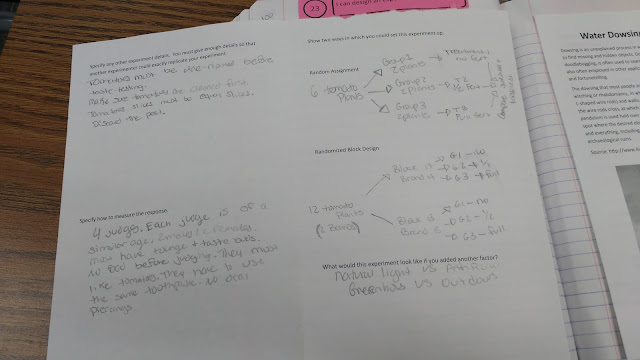 23
I can design an
Specify any other experiment details. You must give enough details so that
another experimenter could exactly replicate your experiment.
must be vine-ripened before
taste-testing.
Make sure tomatoes are cleaned first.
Tomatoes slices must be even slices.
Discard the peel.
Specify how to measure the response.
4 judges. Each judge is of a
similar age. 2 males/2 females.
must have tounge + taste buds.
No food before judging. They must
like tomatoes. They have to use
the same toothpaste. No oral
piercings
Show two ways in which you could set this experiment up.
Random Assignment
6 tomato
Plants
Group 1
2 plants
no fert
Group 2
2 plants
T2
1/2 Fert
Group 3
2 plants
T3
Full fert
Randomized Block Design
12 tomato
Plants
(2 Brands)
Block A
Brand A
G1 - no
G2 - 1/2
G3 - Full
Block B
Brand B
G1 - no
G2 - 1/2
G3 - Full
What would this experiment look like if you added another factor?
Natural light vs Artificial
Greenhouse vs Outdoors
Water Dowsing
Dowsing is an unexplained process in
to find missing and hidden objects.
doodlebugging, is often used to search
also often employed in other aspects
and fortunetelling.
The dowsing that most people
witching or rhabdomancy, in
L-shaped wire rods) and walks
the wire rods cross, at which
pendulum is used held over
spot where the desired
and everything, including
archaeological ruins.
Source: http://www